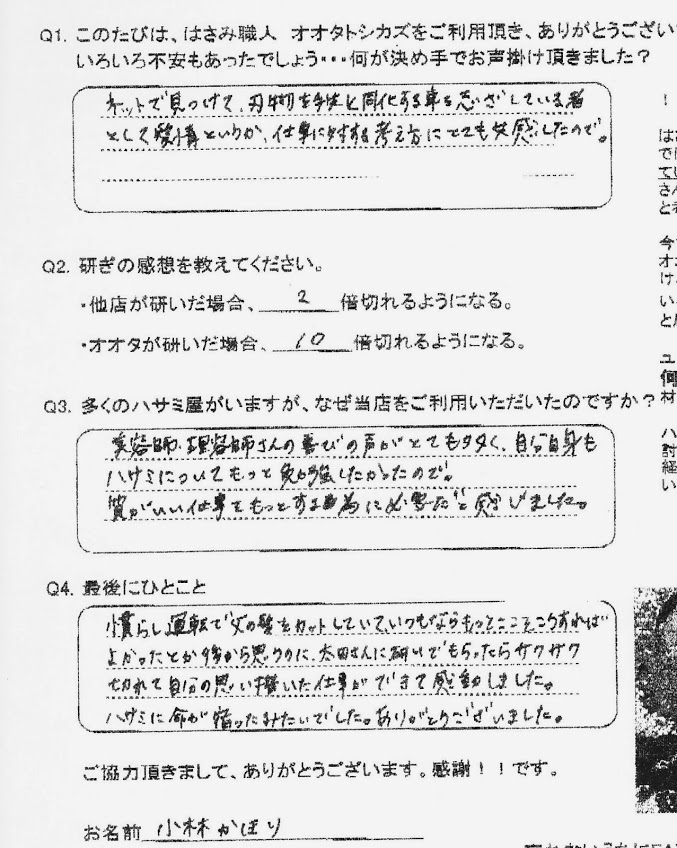 Q1. このたびは、はさみ職人 オオタトシカズをご利用頂き、ありがとうござい
いろいろ不安もあったでしょう・・・何が決め手でお声掛け頂きました？
ネットで見つけて、刃物を手足と同化する事を志ざしている者
として というか、仕事に対する考え方にとても共感したので。
Q2. 研ぎの感想を教えてください。
・他店が研いだ場合、 2 倍切れるようになる。
・オオタが研いだ場合、 10 倍切れるようになる。
Q3. 多くのハサミ屋がいますが、なぜ当店をご利用いただいたのですか？
美容師・理容師さんの喜びの声がとても多く、自分自身も
ハサミについてもっと勉強したかったので。
質がいい仕事をもっとする為に必要だと感じました。
Q4. 最後にひとこと
慣らし運転で父の髪をカットしていて、いつもならもっとここそこうすれば
よかったとか後から思うのに、太田さんに研いでもらったらサクサク
切れて自分の思い描いた仕事ができて感動しました。
ハサミに命が宿ったみたいでした。ありがとうございました。
ご協力頂きまして、ありがとうございます。感謝！！です。
お名前 小林かほり
！
はさ
では
てし
さん
と
今
オ
け
い
と
ユ
何
材
ハ
討
経
い